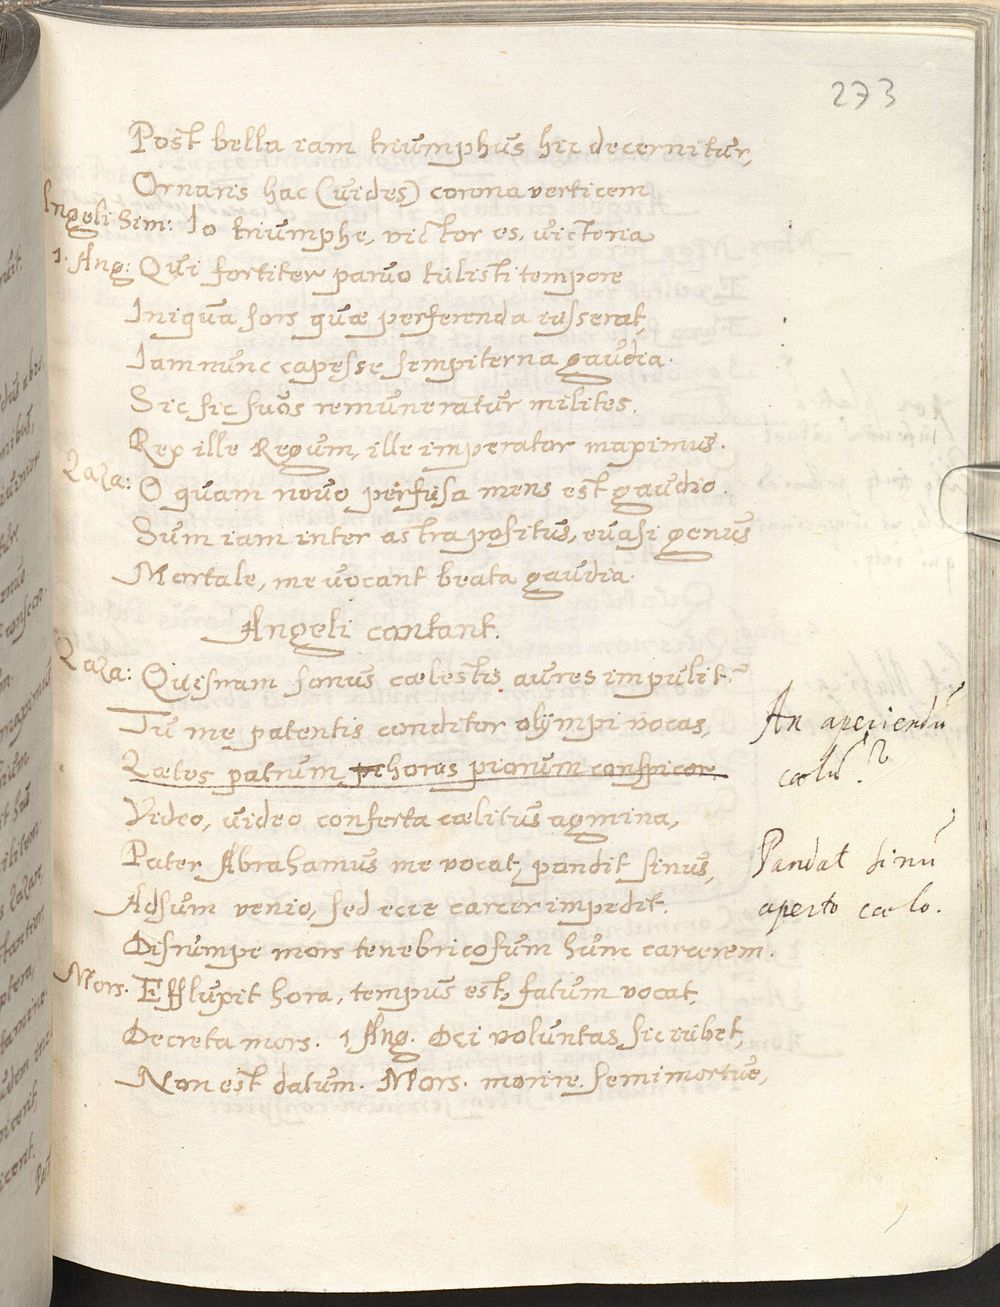 273
Post bella iam triumphus hic decernitur,
Ornaris hac (uides) corona verticem
Angeli Sim: Io triumphe, victor es, uictoria
1. Ang: Qui fortiter paruo tulisti tempore
Iniqua sors quæ perferenda iusserat,
Iam nunc capesse sempiterna gaudia.
Sic sic suos remuneratur milites,
Rex ille Regum, ille imperator maximus.
Laza: O quam nouo perfusa mens est gaudio.
Sum iam inter astra positus, euasi genus
Mortale, me uocant beata gaudia.
Angeli cantant.
Laza: Quisnam sonus cælestis aures impulit?
Tu me patentis conditor olÿmpi vocas,
Lætos patrum choros piorum conspicor
An aperiendũ cœlũ?
Video, uideo conferta cælitus agmina,
Pater Abrahamus me vocat, pandit sinus,
Pandat sinũ
Adsum venio, sed ecce carcer impedit.
aperto cœlo.
Disrumpe mors tenebricosum hunc carcerem.
Mors. Effluxit hora, tempus est, fatum vocat,
Decreta mors. 1 Ang. Dei voluntas sic iubet,
Non est datum. Mors. morire semimortue,